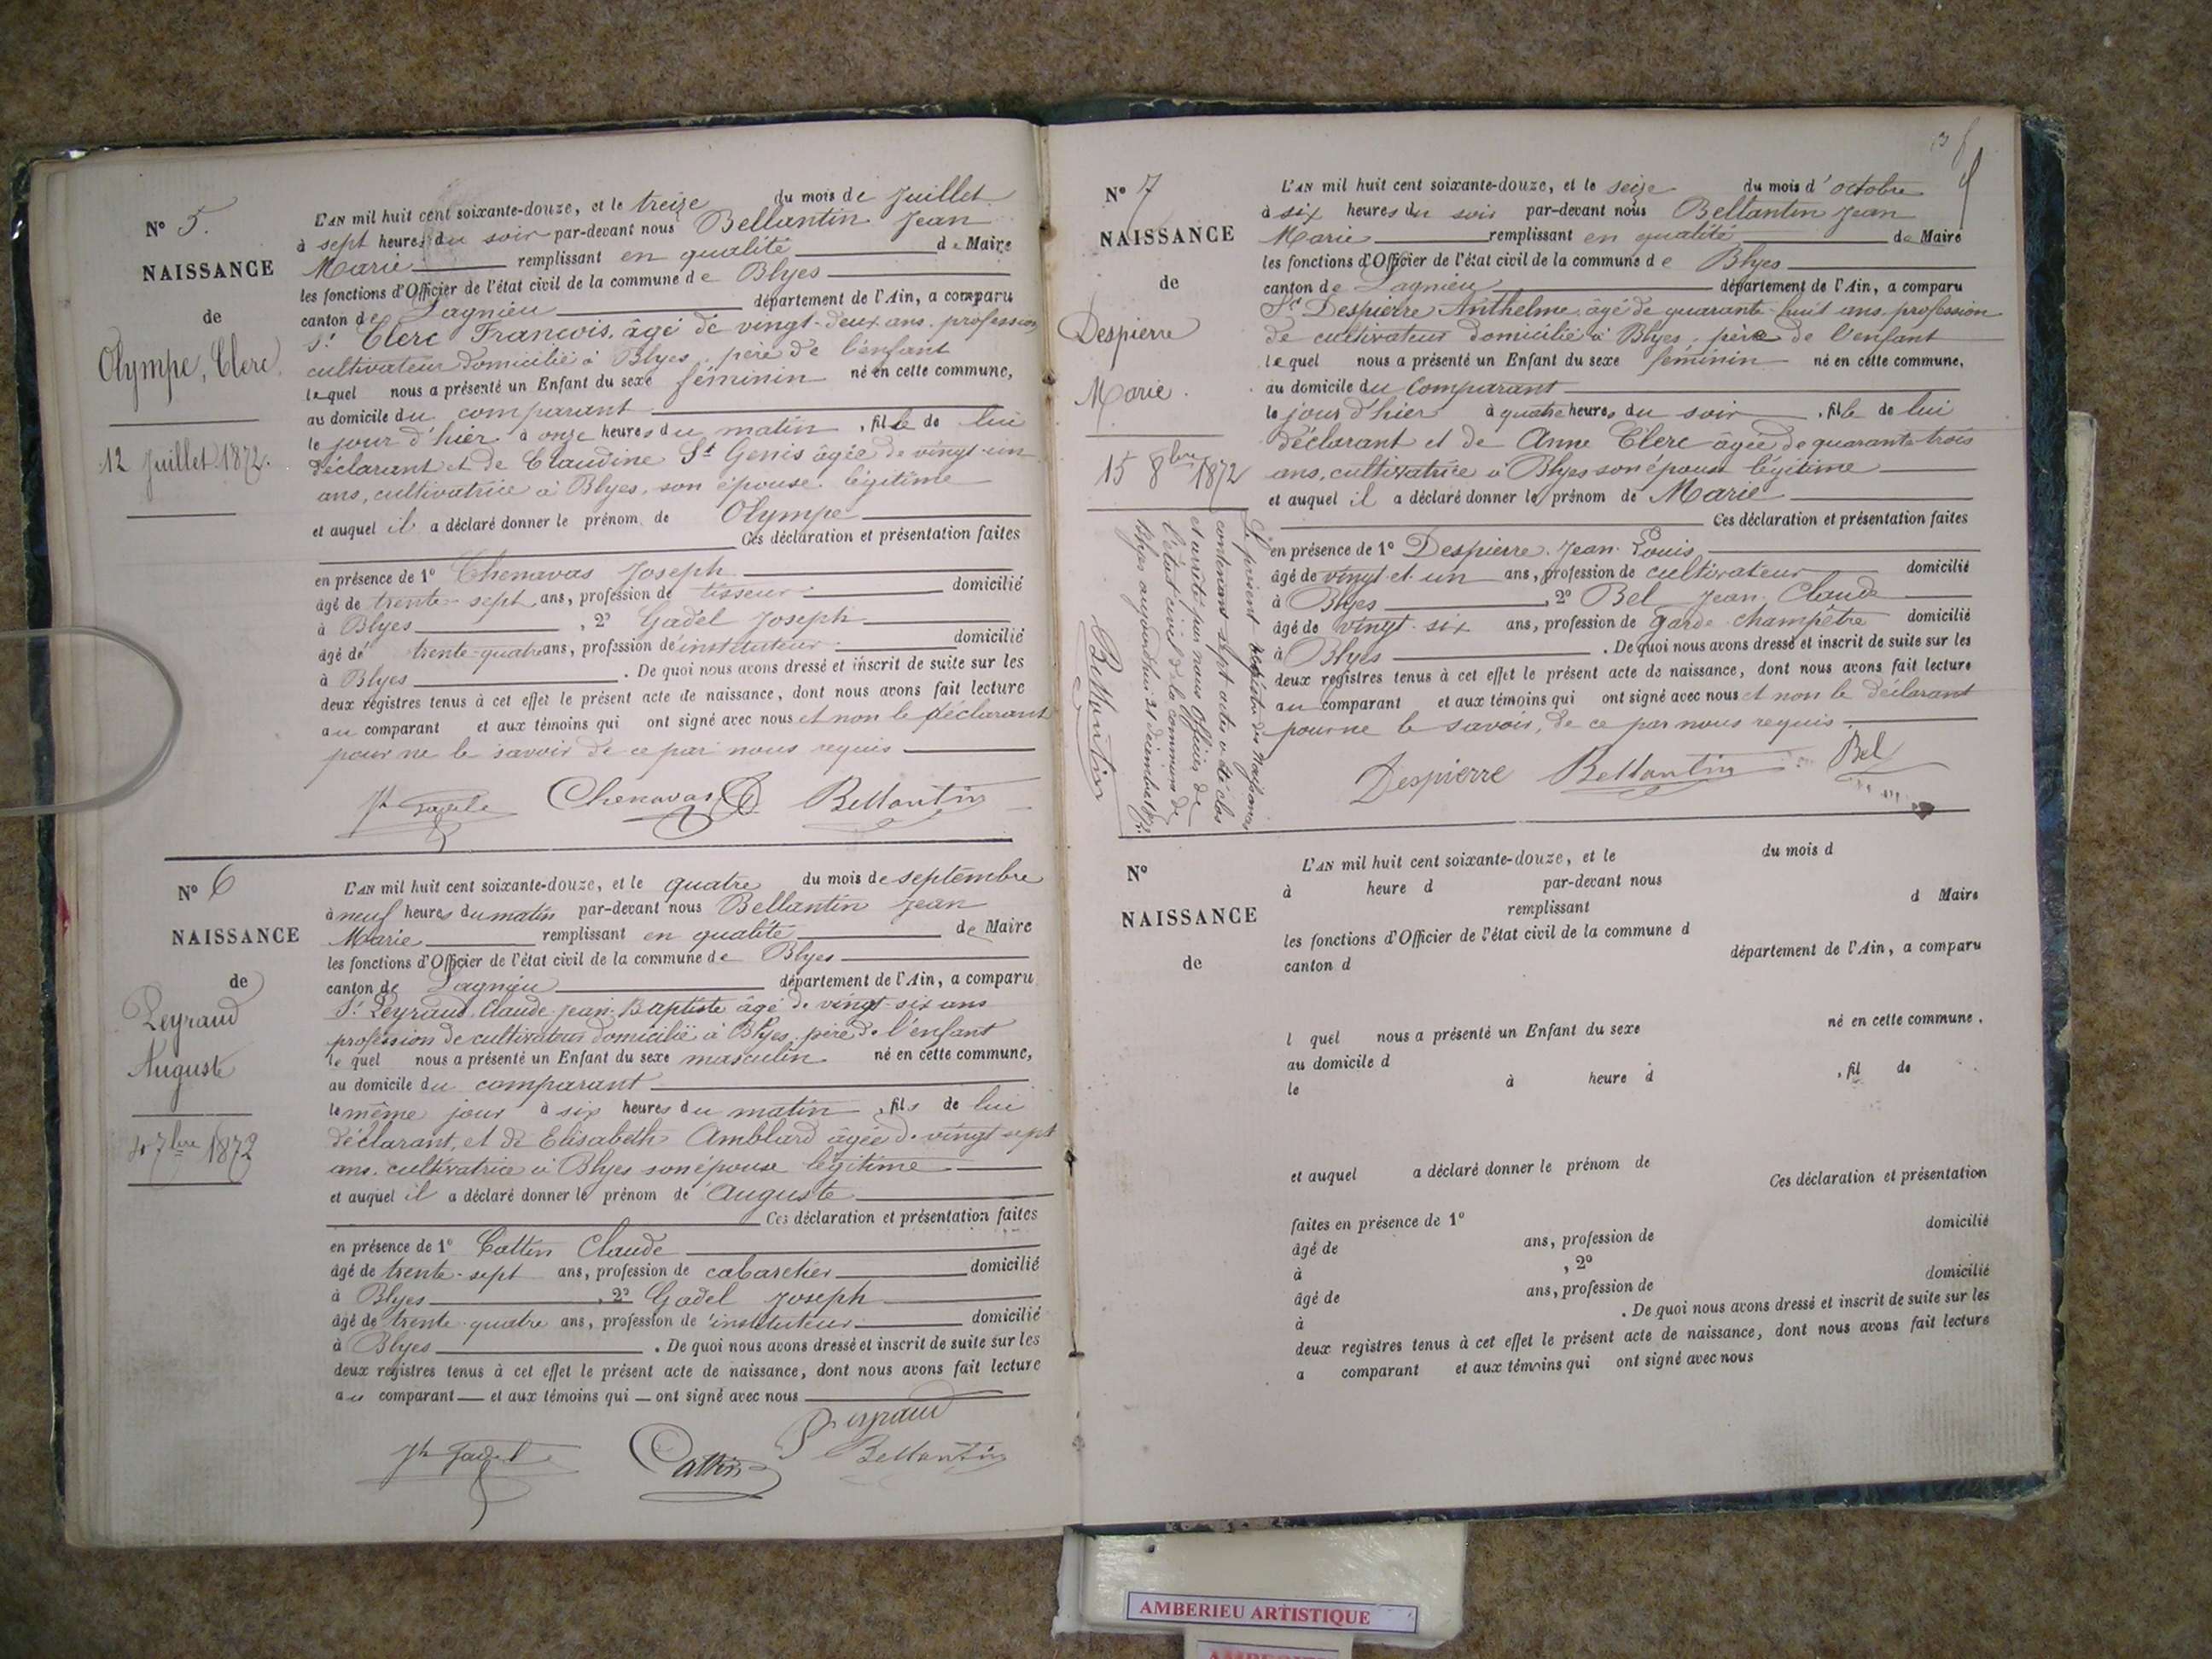 N° 5.
NAISSANCE
de
Olympe, Clerc.
12 Juillet 1872.
L'AN mil huit cent soixante-douze, et le treize du mois de Juillet
à sept heures du soir par-devant nous Bellantin Jean
Marie remplissant en qualité de Maire
les fonctions d'Officier de l'état civil de la commune de Blyes
canton de Lagnieu département de l'Ain, a comparu
Sr Clerc François, âgé de vingt-deux ans, profession
cultivateur domicilié à Blyes, père de l'enfant
lequel nous a présenté un Enfant du sexe féminin né en cette commune,
au domicile du comparant
le jour d'hier à onze heures du matin, fille de lui
déclarant et de Claudine St Genis âgée de vingt-un
ans, cultivatrice à Blyes, son épouse légitime
et auquel il a déclaré donner le prénom de Olympe
Ces déclaration et présentation faites
en présence de 1° Chenavas Joseph
âgé de trente-sept ans, profession de tisseur domicilié
à Blyes, 2° Gadel Joseph
âgé de trente-quatre ans, profession de instituteur domicilié
à Blyes. De quoi nous avons dressé et inscrit de suite sur les
deux registres tenus à cet effet le présent acte de naissance, dont nous avons fait lecture
au comparant et aux témoins qui ont signé avec nous et non le déclarant
pour ne le savoir de ce par nous requis
Jh Gadel Chenavas Bellantin
N° 6
NAISSANCE
de
Peyraud
Auguste
4 7bre 1872
L'AN mil huit cent soixante-douze, et le quatre du mois de septembre
à neuf heures du matin par-devant nous Bellantin Jean
Marie remplissant en qualité de Maire
les fonctions d'Officier de l'état civil de la commune de Blyes
canton de Lagnieu département de l'Ain, a comparu
Sr Peyraud Claude Jean Baptiste âgé de vingt-six ans
profession de cultivateur domicilié à Blyes, père de l'enfant
lequel nous a présenté un Enfant du sexe masculin né en cette commune,
au domicile du comparant
le même jour à six heures du matin, fils de lui
déclarant, et de Elisabeth Amblard âgée de vingt sept
ans, cultivatrice à Blyes son épouse légitime
et auquel il a déclaré donner le prénom de Auguste
Ces déclaration et présentation faites
en présence de 1° Cattin Claude
âgé de trente-sept ans, profession de cabaretier domicilié
à Blyes, 2° Gadel Joseph
âgé de trente-quatre ans, profession de instituteur domicilié
à Blyes. De quoi nous avons dressé et inscrit de suite sur les
deux registres tenus à cet effet le présent acte de naissance, dont nous avons fait lecture
au comparant et aux témoins qui ont signé avec nous
Peyraud
Jh Gadel Cattin Bellantin
N° 7
NAISSANCE
de
Despierre
Marie.
15 8bre 1872
Le présent registre des naissances
contenant sept actes a été clos
et arrêté par nous Officier de
l'état civil de la commune de
Blyes aujourd'hui 31 décembre 1872.
Bellantin
L'AN mil huit cent soixante-douze, et le seize du mois d'octobre
à six heures du soir par-devant nous Bellantin Jean
Marie remplissant en qualité de Maire
les fonctions d'Officier de l'état civil de la commune de Blyes
canton de Lagnieu département de l'Ain, a comparu
Sr Despierre Anthelme, âgé de quarante-huit ans, profession
de cultivateur domicilié à Blyes, père de l'enfant
lequel nous a présenté un Enfant du sexe féminin né en cette commune,
au domicile du comparant
le jour d'hier à quatre heures du soir, fille de lui
déclarant et de Anne Clerc âgée de quarante trois
ans, cultivatrice à Blyes son épouse légitime
et auquel il a déclaré donner le prénom de Marie
Ces déclaration et présentation faites
en présence de 1° Despierre Jean Louis
âgé de vingt et un ans, profession de cultivateur domicilié
à Blyes, 2° Bel Jean Claude
âgé de vingt-six ans, profession de garde champêtre domicilié
à Blyes. De quoi nous avons dressé et inscrit de suite sur les
deux registres tenus à cet effet le présent acte de naissance, dont nous avons fait lecture
au comparant et aux témoins qui ont signé avec nous et non le déclarant
pour ne le savoir, de ce par nous requis.
Despierre Bellantin Bel
N°
NAISSANCE
de
L'AN mil huit cent soixante-douze, et le du mois d
à heure d par-devant nous
remplissant d Maire
les fonctions d'Officier de l'état civil de la commune d
canton d département de l'Ain, a comparu
l quel nous a présenté un Enfant du sexe né en cette commune,
au domicile d
le à heure d, fil de
et auquel a déclaré donner le prénom de
Ces déclaration et présentation
faites en présence de 1° domicilié
âgé de ans, profession de
à , 2°
âgé de ans, profession de domicilié
à . De quoi nous avons dressé et inscrit de suite sur les
deux registres tenus à cet effet le présent acte de naissance, dont nous avons fait lecture
a comparant et aux témoins qui ont signé avec nous
AMBERIEU ARTISTIQUE